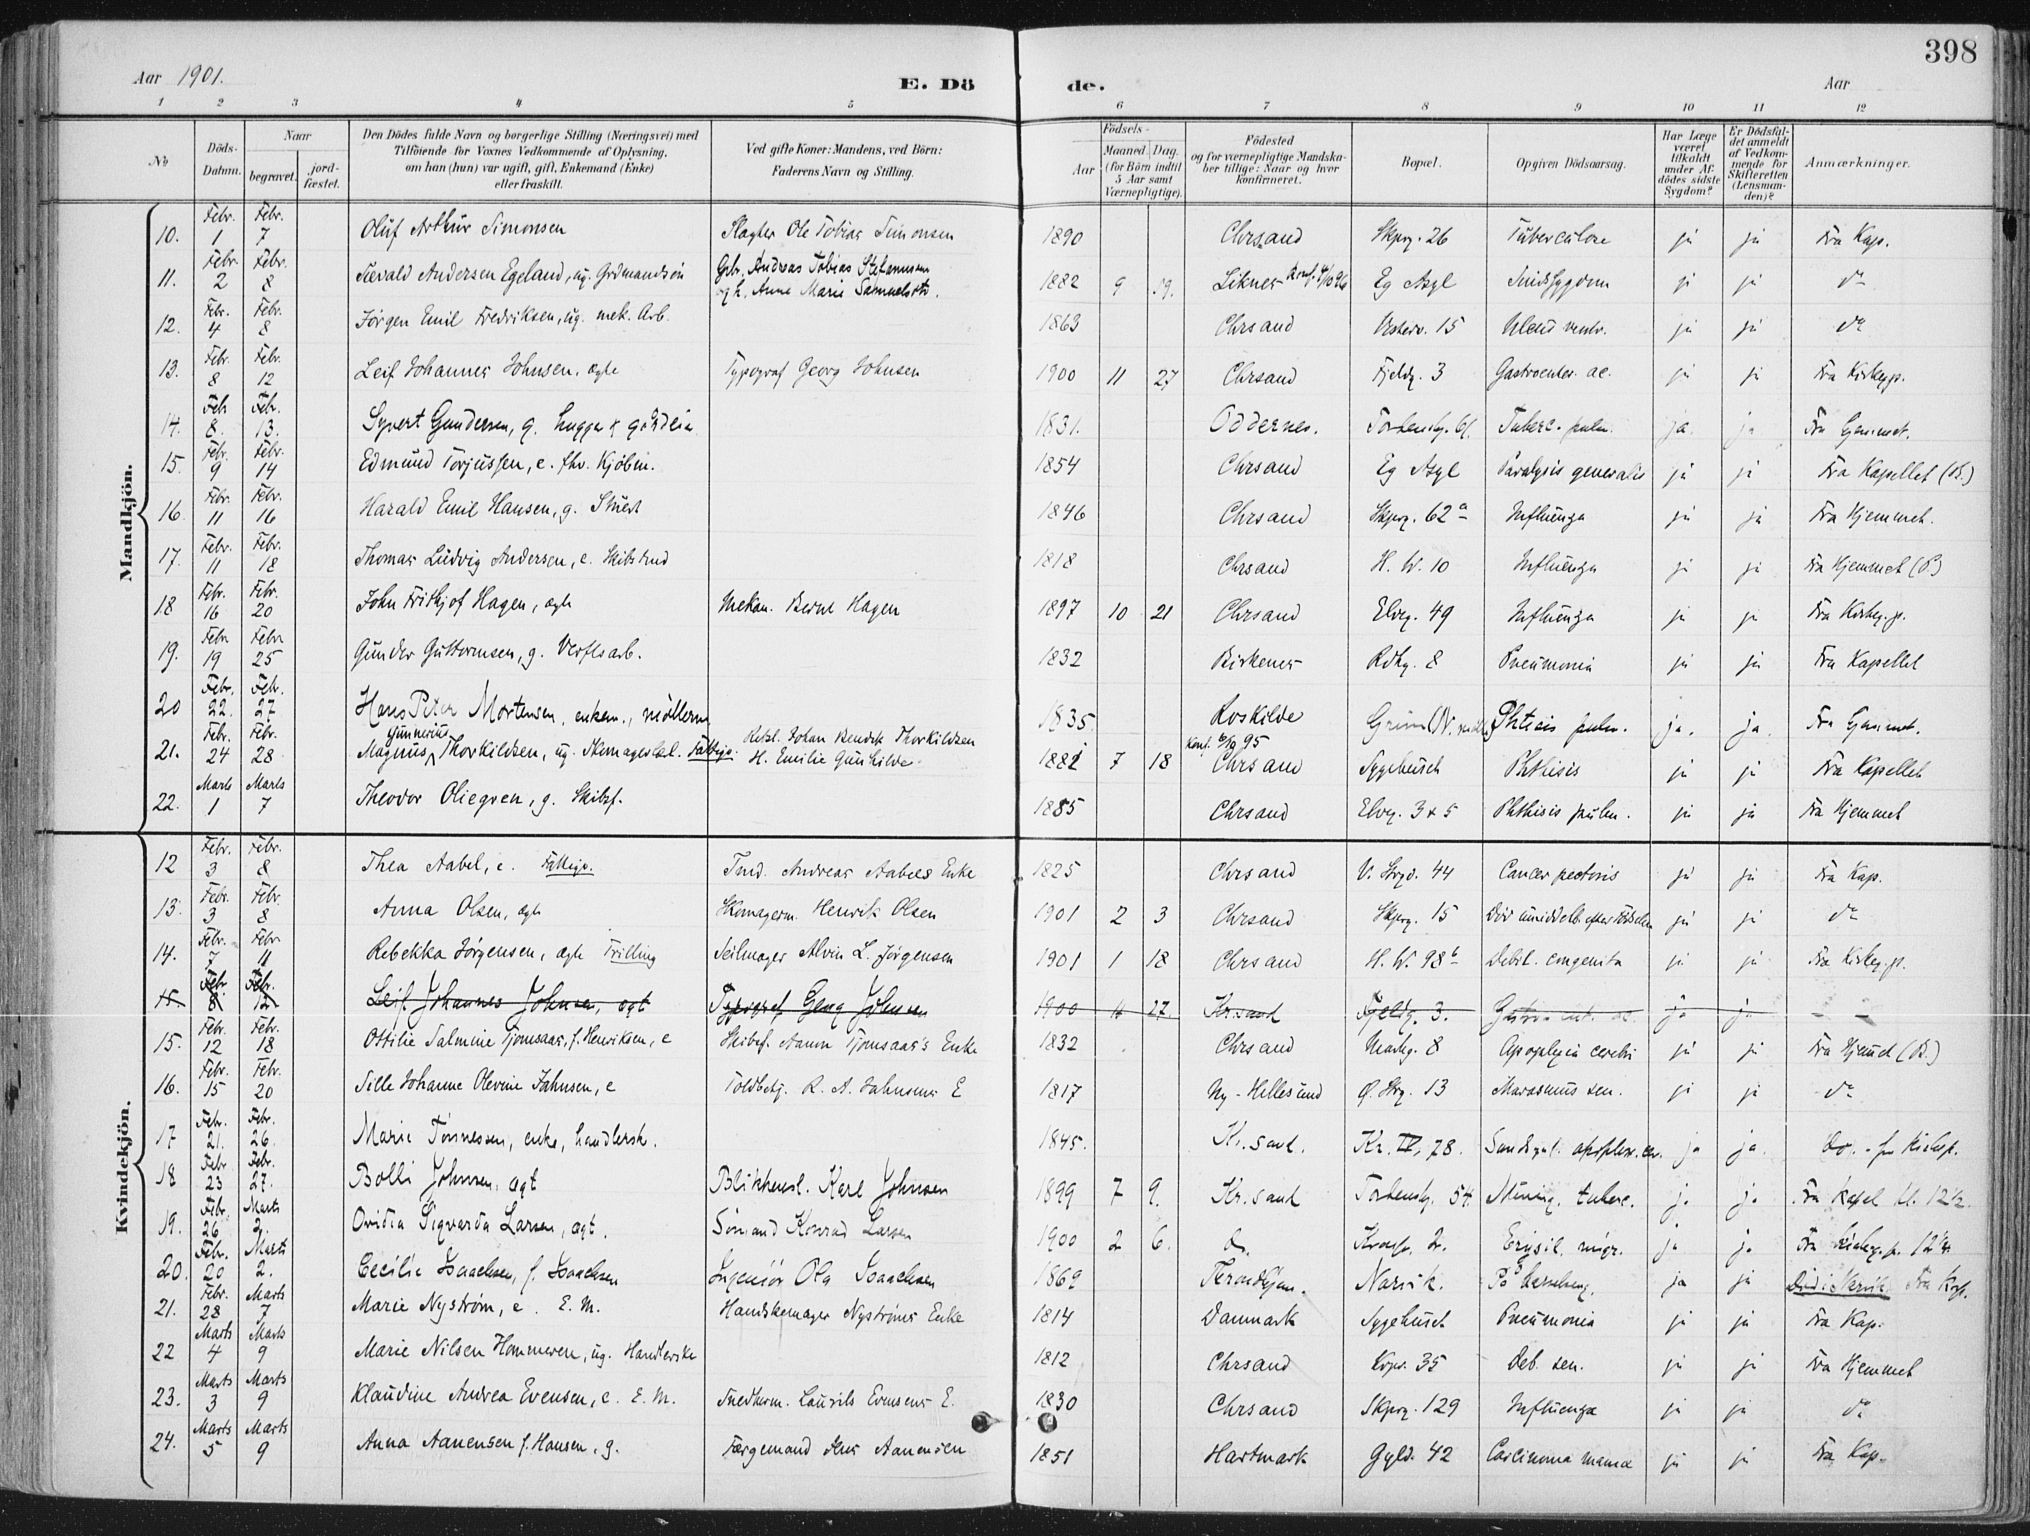 398
Aar 1901. E. Dö de. Aar
1 2 3 4 5 6 7 8 9 10 11 12
No
Döds-Datum.
Naar begravet. jord-fæstet.
Den Dödes fulde Navn og borgerlige Stilling (Næringsvei) med Tilföiende for Voxnes Vedkommende af Oplysning, om han (hun) var ugift, gift, Enkemand (Enke) eller fraskilt.
Ved gifte Koner: Mandens, ved Börn: Faderens Navn og Stilling.
Födsels- Aar Maaned Dag. (for Börn indtil 5 Aar samt Værnepligtige).
Födested og for værnepligtige Mandskaber tillige: Naar og hvor konfirmeret.
Bopæl.
Opgiven Dödsaarsag.
Har Læge været tilkaldt under Afdödes sidste Sygdom?
Er Dödsfaldet anmeldt af Vedkommende for Skifteretten (Lensmanden)?
Anmærkninger.
Mandkjön.
10. Febr. 1 Febr. 7 Oluf Arthur Simonsen Slagter Ole Tobias Simonsen 1890 Chrsand Skpg. 26 Tuberculose ja ja Fra Kap.
11. Febr. 2 Febr. 8 Sievald Andersen Egeland, ug. Grdmandsön Gbr. Andreas Tobias Stefanussen og h. Anne Marie Samuelsdtr. 1882 9 19. Liknes Konf. 4/10 96 Eg Asyl Sindssygdom ja ja do
12. Febr. 4 Febr. 8 Jörgen Emil Fredriksen, ug. mek. Arb. 1863 Chrsand Vesterv. 15 Ulcus ventr. ja ja do
13. Febr. 8 Febr. 12 Leif Johannes Johnsen, ægte Typograf Georg Johnsen 1900 11 27 Chrsand Fjeldg. 3 Gastroenter. ac. ja ja Fra Kirkegp.
14. Feb 8. Febr. 13. Syvert Gundersen, g. 1831. Oddernes. Tordensk. 61. Tuberc. pulm. ja ja Fra Hjemmet.
15. Febr. 9 Febr. 14 Edmund Torjussen, e. fhv. Kjöbm. 1854 Chrsand Eg Asyl Paralysis generalis ja ja Fra Kapellet (B.)
16. Febr. 11 Febr. 16 Harald Emil Hansen, g. 1846 Chrsand Skpg. 62 a Influenza ja ja Fra Hjemmet.
17. Febr. 11 Febr. 18 Thomas Ludvig Andersen, e. Skibstmd 1818 Chrsand H. W. 10 Influenza ja ja Fra Hjemmet (B)
18 Febr. 16 Febr. 20 John Frithjof Hagen, ægte Mekan. Bernt Hagen 1897 10 21 Chrsand Elvg. 49 Influenza ja ja Fra Kirkeg.p.
19. Febr 19 Febr 25 Gunder Guttormsen, g. Verftsarb. 1832 Birkenes Rdhg. 8 Pneumonia ja ja Fra Kapellet
20 Febr. 22. Febr. 27 Hans Peter Mortensen, enkem., möllerm 1835 Roskilde Grim Phtisis pulm. ja. ja. Fra Hjemmet.
21. Febr. 24 Febr. 28 Magnus Gunnerius Thorkildsen, ug. Skomagerlærl. Fattigv. Rebsl. Johan Bendik Thorkildsen H. Emilie Gunhilde 1881 7 18 Konf. 6/10 95 Chrsand Sygehuset Phthisis ja ja Fra Kapellet
22. Marts 1 Marts 7 Theodor Oliegren, g. Skibsf. 1885 Chrsand Elvg. 3 & 5 Phthisis pulm. ja ja Fra Hjemmet
Kvindekjön.
12 Febr. 3 Febr. 8 Thea Aabel, e. Fattigv. Tmd. Andreas Aabels Enke 1825 Chrsand V. Strg. 44 Cancer pectoris ja ja Fra Kap.
13. Febr. 3 Febr. 8 Anna Olsen, ægte Skomagerm. Henrik Olsen 1901 2 3 Chrsand Skpg. 15 Död umiddelb. efter Födselen ja ja do
14. Febr. 7 Febr 11 Rebekka Jörgensen, ægte Trilling Seilmager Alvin L. Jörgensen 1901 1 18 Chrsand H. W. 98 b Debil. congenita ja ja Fra Kirkeg.p.
15 Febr 8 Febr. 12 Leif Johannes Johnsen, ægt Typograf Georg Johnsen 1900 11 27. Kr.sand Fjeldg. 3. Gastro-ent. ac. ja ja - -
15. Febr. 12 Febr. 18 Ottilie Salmine Tjomsaas, f. Henriksen, e Skibsf. Aanen Tjomsaas's Enke 1832 Chrsand Markg. 8 Apoplexia cerebri ja ja Fra Hjemmet (B.)
16. Febr. 15 Febr. 20 Sille Johanne Olevine Jahnsen, e Toldbetj. R. A. Jahnsens E 1817 Ny-Hellesund Ø. Strg. 13 Marasmus sen. ja ja do
17 Febr. 21. Febr. 26. Marie Tönnessen, enke, handlersk. 1845. Kr.sand. Kr. IV, 78. apoplex. cer. ja ja. Do. - fra Kirkegp.
18 Febr 23 Febr. 27. Bolli Johnsen, ægt Blikkensl. Karl Johnsen 1899 7 9. Kr.sand Tordensk. 54. Mening. tuberc. ja ja Fra Kapel kl. 12 1/2.
19. Febr. 26 Marts 2. Ovidia Sigvarda Larsen, ægt. Sömand Konrad Larsen 1900 2 6. Do. Erysil. migr. ja ja Fra Kirkeg.p. 12 1/2
20. Febr. 20 Marts 2. Cecilie Isaachsen, f. Isaachsen Ingeniör Ola Isaachsen 1869 Trondhjem. Narvik. ja ja Död i Narvik Fra Kap.
21. Febr. 28 Marts 7 Marie Nyström, e. E. M. Handskemager Nyströms Enke 1814 Danmark Sygehuset Pneumonia ja ja Fra Kap.
22 Marts 4 Marts 9 Marie Nilsen Hommeren, ug. Handlerske 1812 Chrsand Kgsv. 35 Deb. sen. ja ja Fra Hjemmet
23. Marts 3 Marts 9 Klaudine Andrea Evensen, e. E. M. Snedkerm. Laurits Evensens E. 1830 Chrsand Skpg. 129 Influenza ja ja do
24. Marts 5 Marts 9 Anna Aanensen f. Hansen, g. Færgemand Jens Aanensen 1851 Hartmark Gyld. 42 Carcinoma mamæ ja ja Fra Kap.